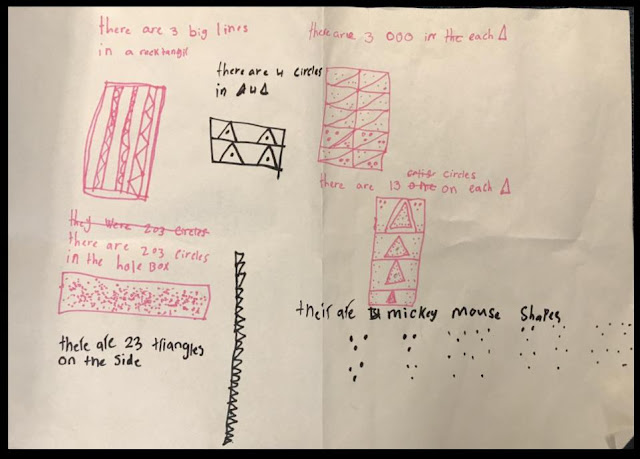 there are 3 big lines
in a recktangle
there are 4 circles
in 4 Δ
there are 3 000 in the each Δ
there are 13 circles
on each Δ
they were 203 circles
there are 203 circles
in the hole Box
their are mickey mouse shapes
there are 23 triangles
on the side